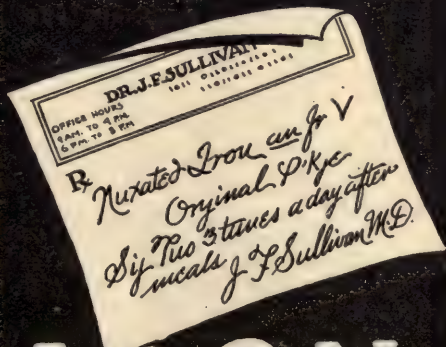 DR. J. F. SULLIVAN
OFFICE HOURS
9 AM. TO 4 PM.
6 P.M. TO 8 P.M.
℞ Nuxated Iron V
Orginal P'kge
Sig Two 3 times a day after
meals
J F Sullivan M.D.